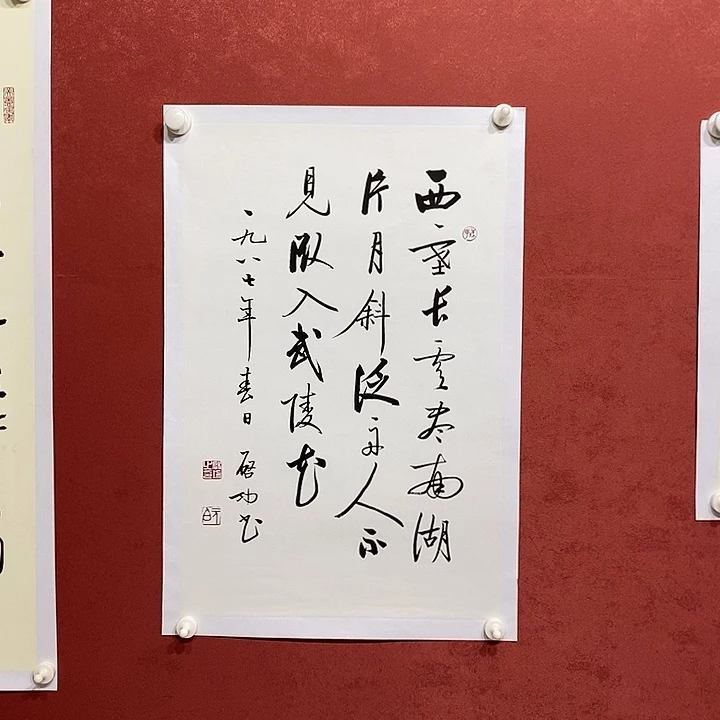 西塞长雲尽南湖
片月斜泛舟人不
見臥入武陵花
一九八七年春日 启功书